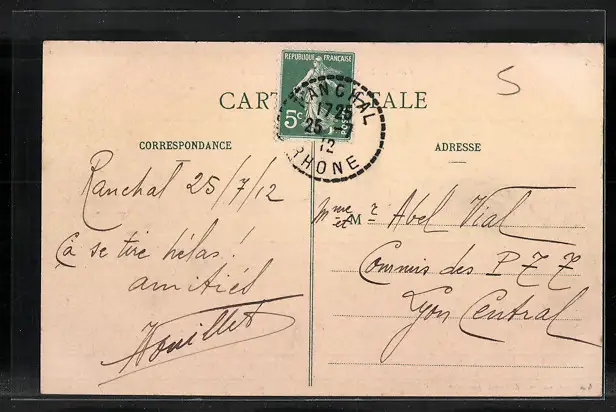 S
RÉPUBLIQUE FRANÇAISE
5c POSTES
RANCHAL
17 25
25 - 7
12
RHONE
CARTE POSTALE
CORRESPONDANCE
Ranchal 25/7/12
Ça se tire hélas !
amitiés
ADRESSE
Mme et M r Abel Vial
Commis des P T T
Lyon Central